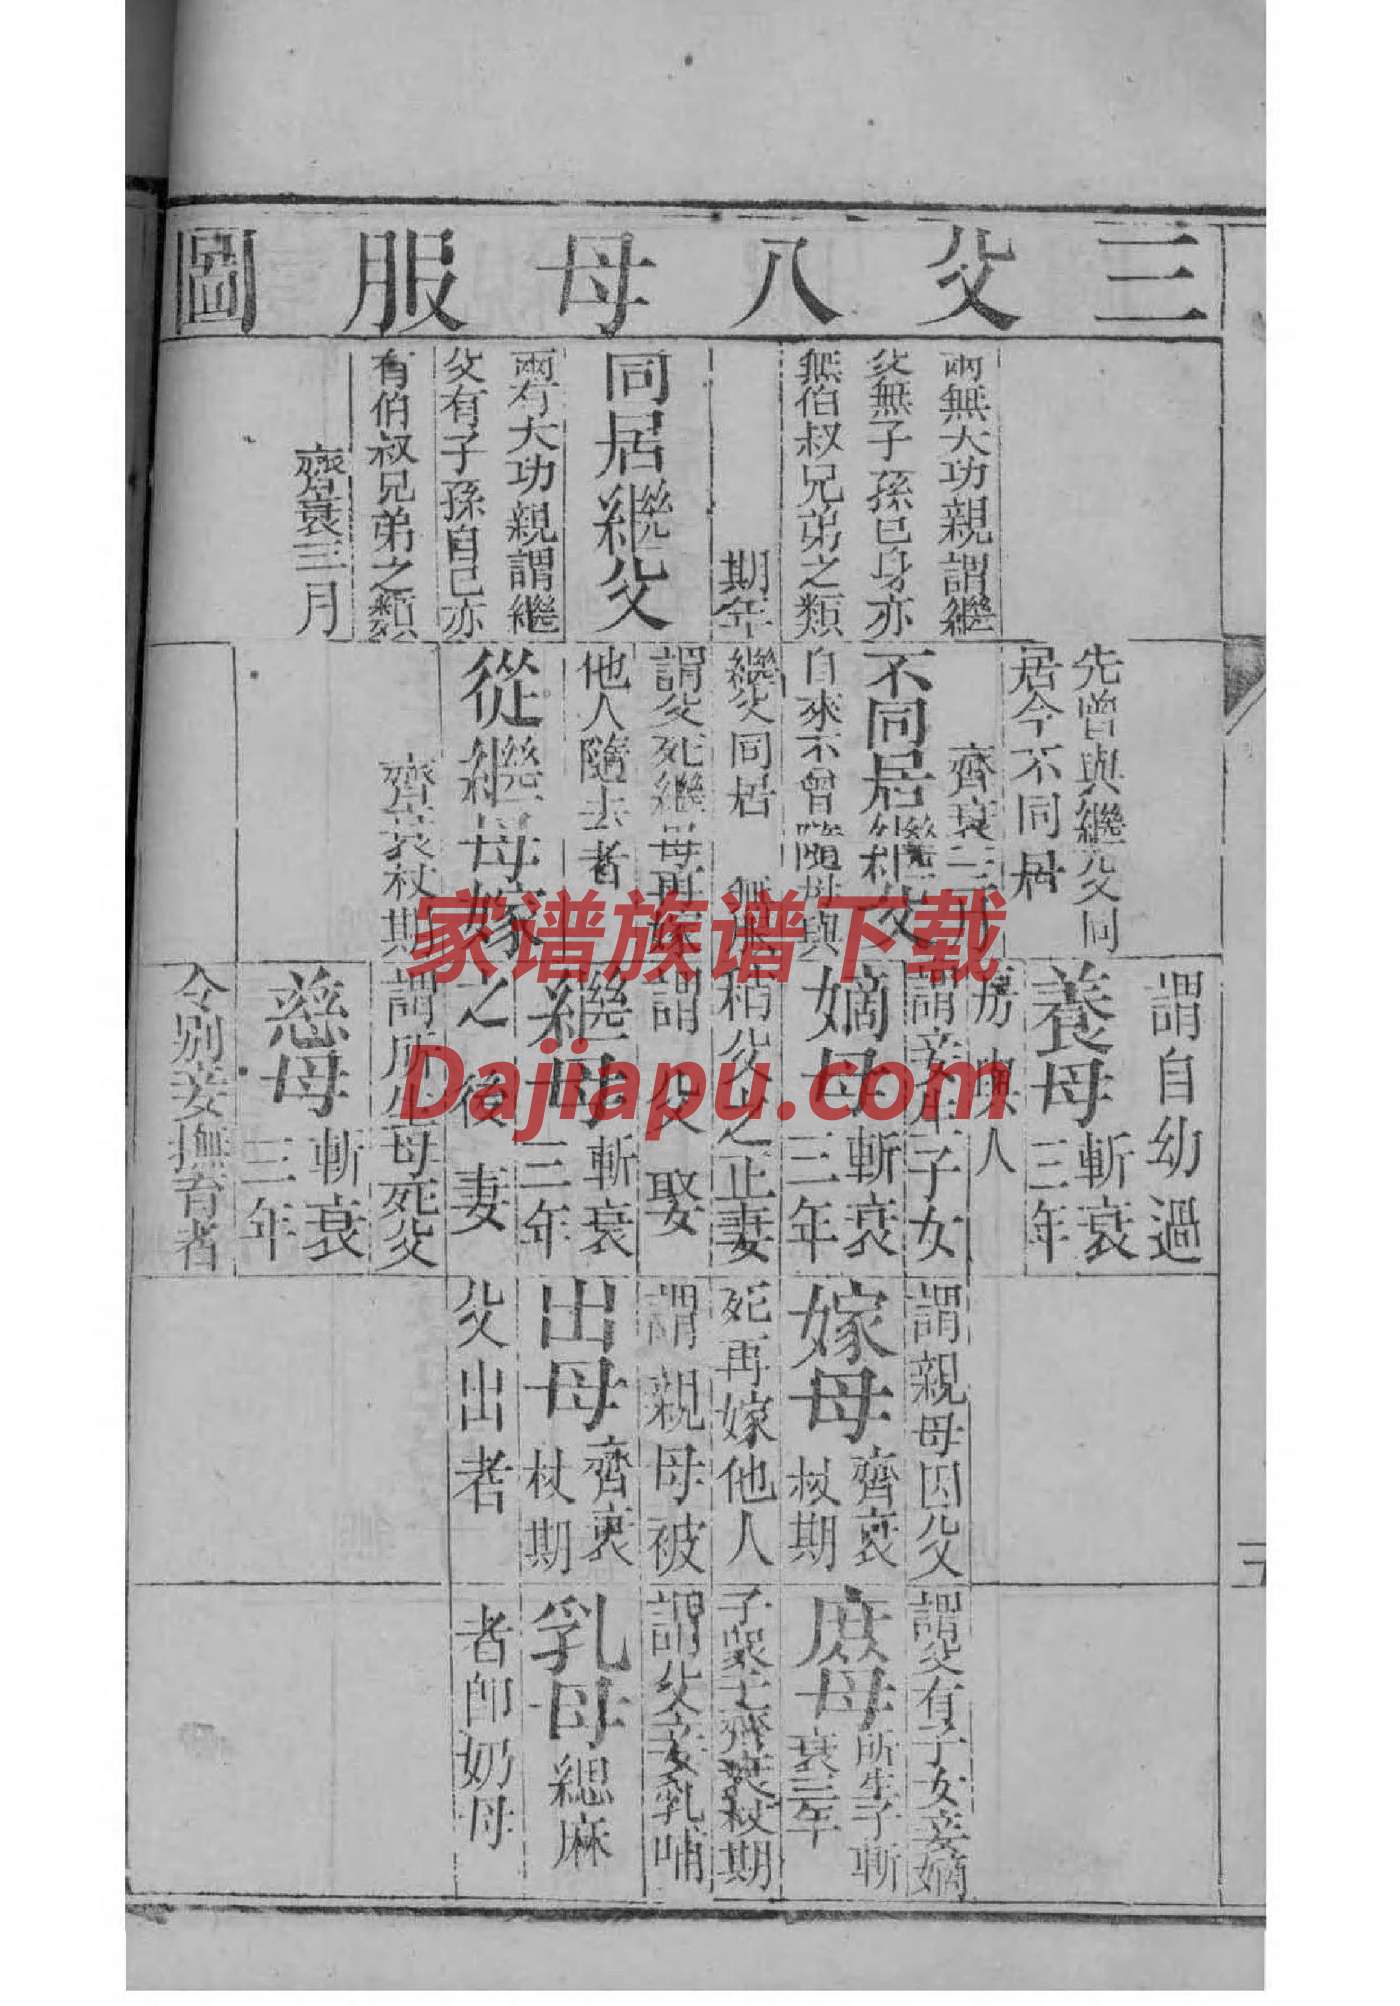 三父八母服圖
兩無大功親謂繼
父無子孫已身亦
無伯叔兄弟之類
期年
同居繼父
兩有大功親謂繼
父有子孫自己亦
有伯叔兄弟之類
齊衰三月
先曾與繼父同
居今不同居
齊衰三月
不同居繼父
自來不曾隨母與
繼父同居 無服
謂父死繼母再嫁
他人隨去者
從繼母嫁
齊衰杖期
謂自幼過
養母
斬衰
三年
房與人
謂妾生子女
嫡母
斬衰
三年
稱父之正妻
謂父娶
繼母
斬衰
三年
之後妻
謂所生母死父
慈母
斬衰
三年
令別妾撫育者
謂親母因父
嫁母
齊衰
杖期
死再嫁他人
謂親母被
出母
齊衰
杖期
父出者
謂父有子女妾嫡
庶母
所生子斬
衰三年
子眾子齊衰杖期
謂父妾乳哺
乳母
緦麻
者即奶母
家谱族谱下载
Dajiapu.com